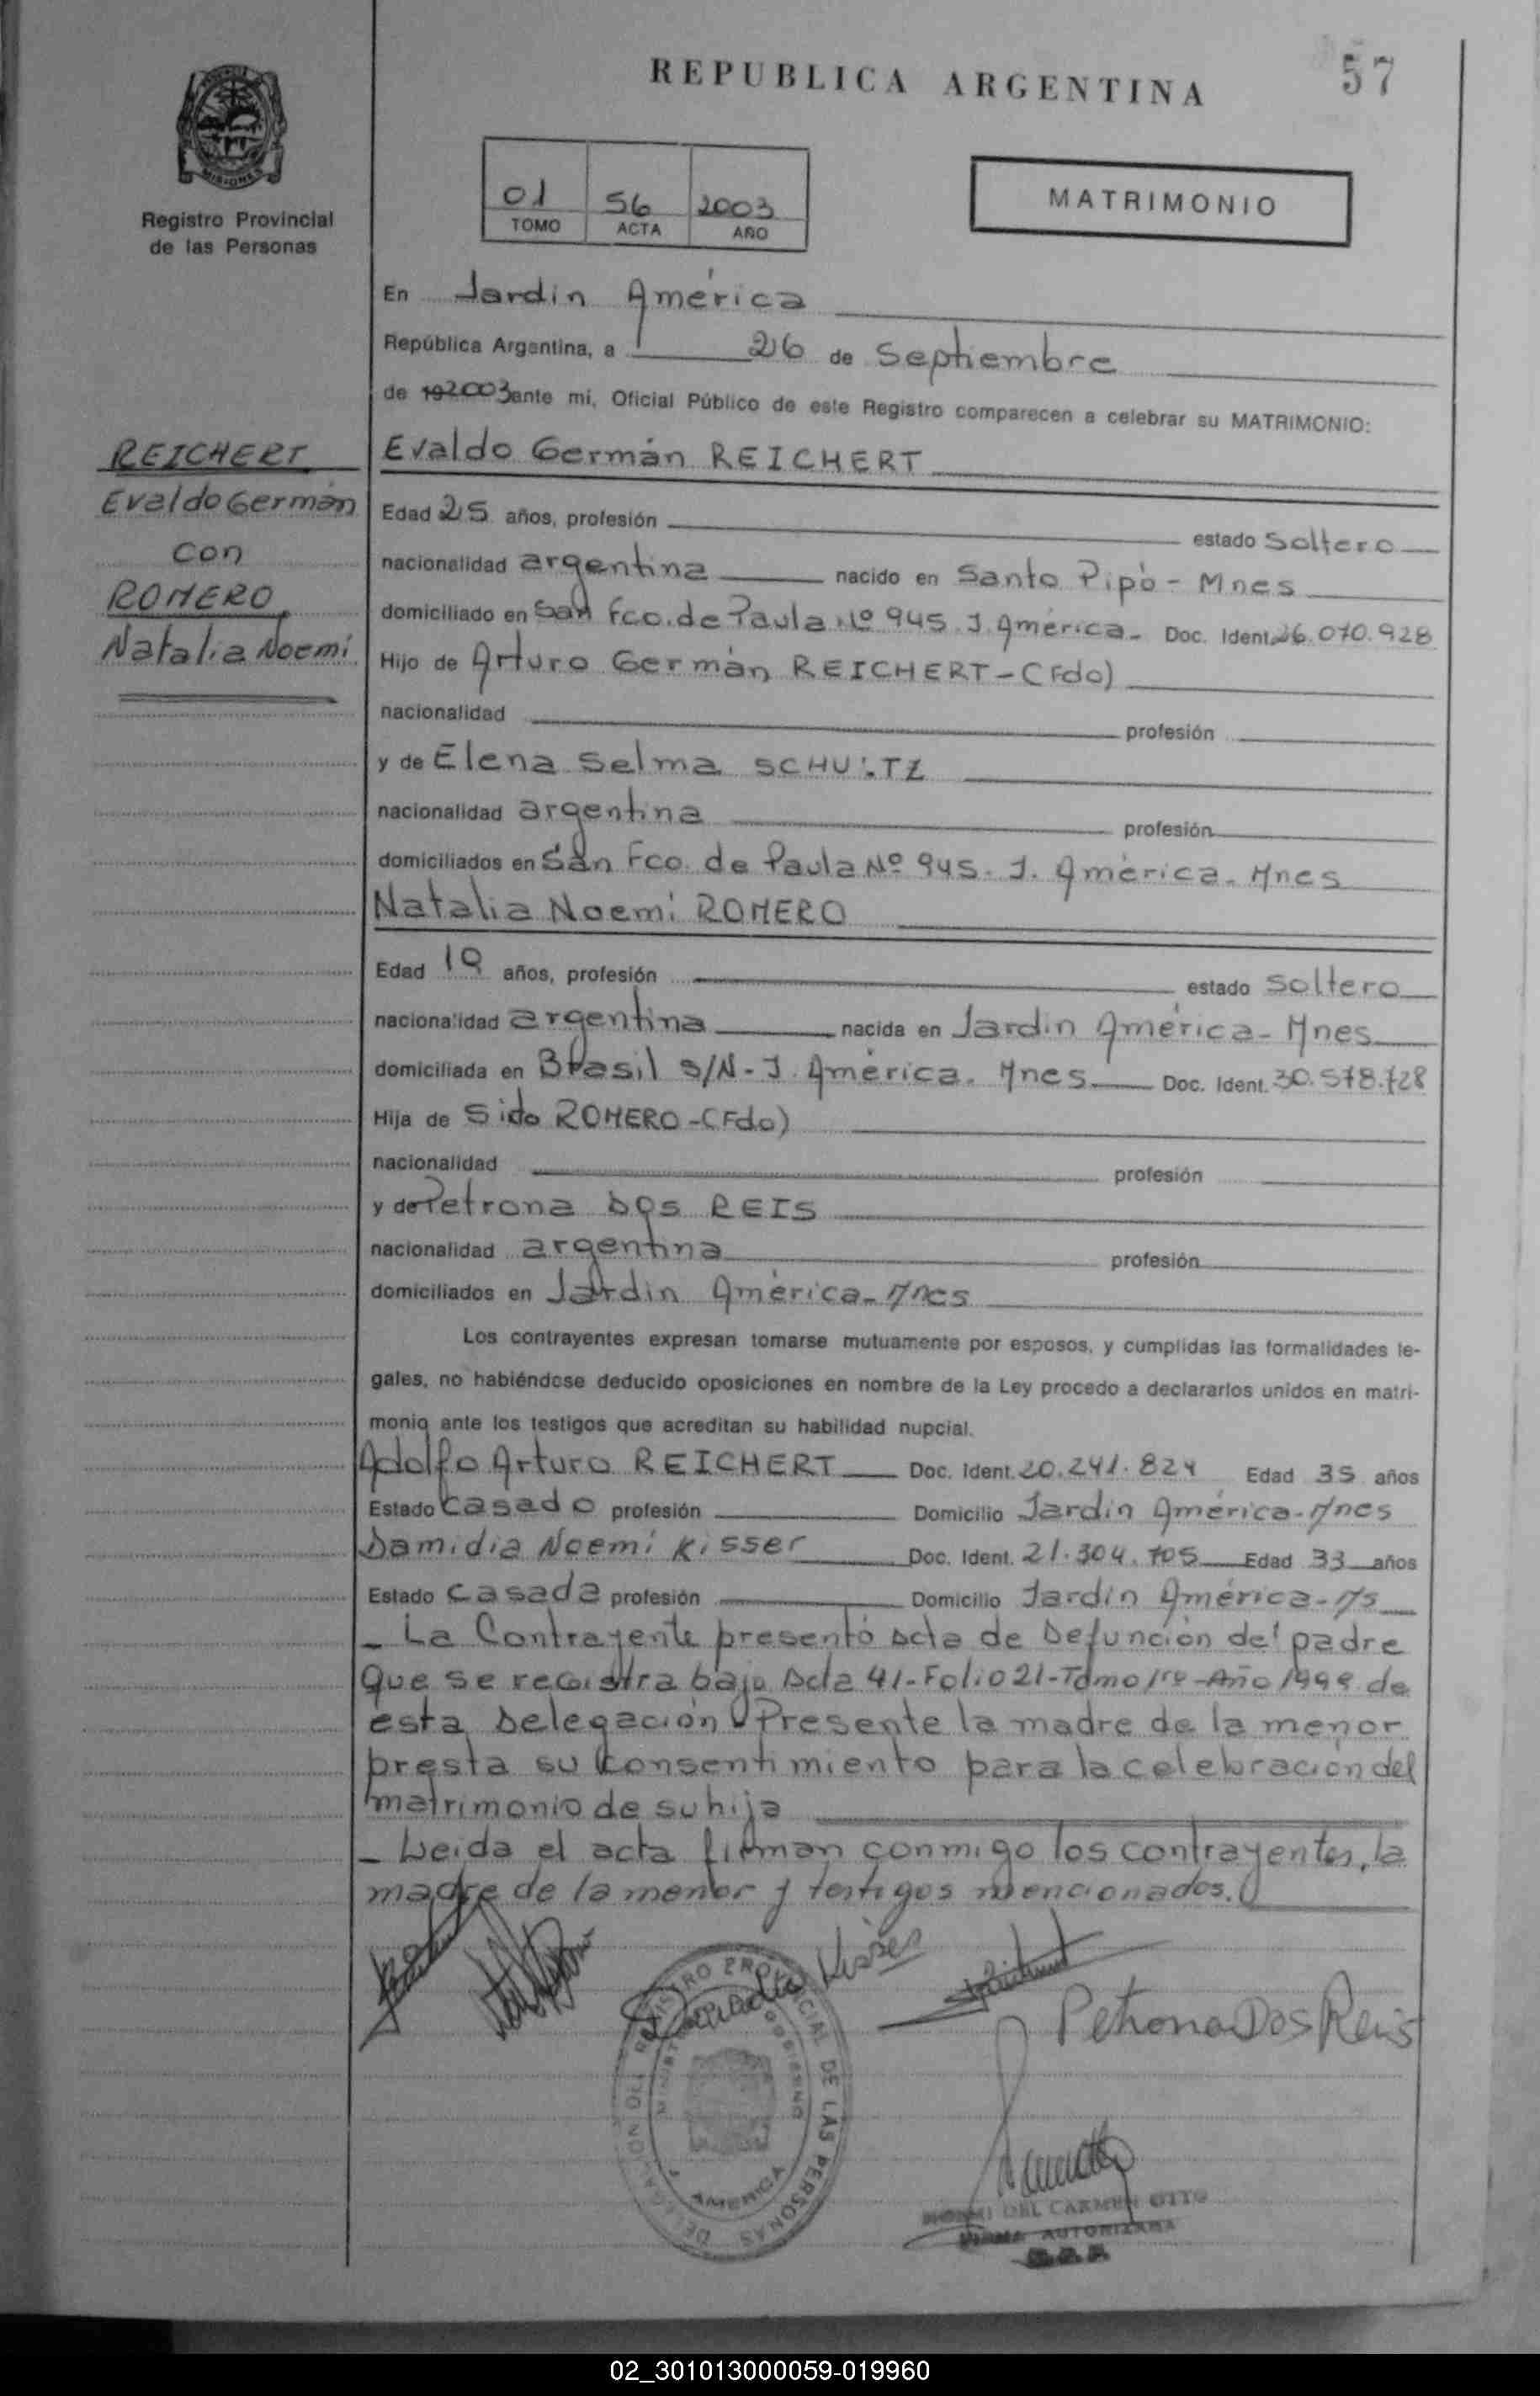 REPUBLICA ARGENTINA
57
MISIONES
Registro Provincial
de las Personas
01 56 2003
TOMO ACTA AÑO
MATRIMONIO
En Jardin América
República Argentina, a 26 de Septiembre
de 192003 ante mi, Oficial Público de este Registro comparecen a celebrar su MATRIMONIO:
REICHERT
Evaldo Germán
con
ROMERO
Natalia Noemi
Evaldo Germán REICHERT
Edad 25 años, profesión estado Soltero
nacionalidad argentina nacido en Santo Pipó - Mnes
domiciliado en San Fco. de Paula Nº 945. J. América- Doc. Ident. 26.070.928
Hijo de Arturo Germán REICHERT-(Fdo)
nacionalidad profesión
y de Elena Selma SCHULTZ
nacionalidad argentina profesión
domiciliados en San Fco. de Paula Nº 945. J. América. Mnes
Natalia Noemi ROMERO
Edad 19 años, profesión estado Soltero
nacionalidad argentina nacida en Jardin América- Mnes
domiciliada en Brasil S/N- J. América. Mnes Doc. Ident. 30.578.728
Hija de Sido ROMERO-(Fdo)
nacionalidad profesión
y de Petrona DOS REIS
nacionalidad argentina profesión
domiciliados en Jardin América-Mnes
Los contrayentes expresan tomarse mutuamente por esposos, y cumplidas las formalidades le-
gales, no habiéndose deducido oposiciones en nombre de la Ley procedo a declararlos unidos en matri-
monio ante los testigos que acreditan su habilidad nupcial.
Adolfo Arturo REICHERT Doc. Ident. 20.241.824 Edad 35 años
Estado Casado profesión Domicilio Jardin América-Mnes
Damidia Noemi Kisser Doc. Ident. 21.304.705 Edad 33 años
Estado Casada profesión Domicilio Jardin América-Ms
- La Contrayente presentó Acta de Defunción del padre
Que se registra bajo Acta 41-Folio 21-Tomo 1ro-Año 1999 de
esta Delegación Presente la madre de la menor
presta su Consentimiento para la celebración del
matrimonio de su hija
- Leida el acta firman conmigo los contrayentes, la
madre de la menor y testigos mencionados.
Damidia Kisser
Petrona Dos Reis
REGISTRO PROVINCIAL DE LAS PERSONAS
AMERICA
NOEMI DEL CARMEN OTTO
FIRMA AUTORIZADA
02_301013000059-019960